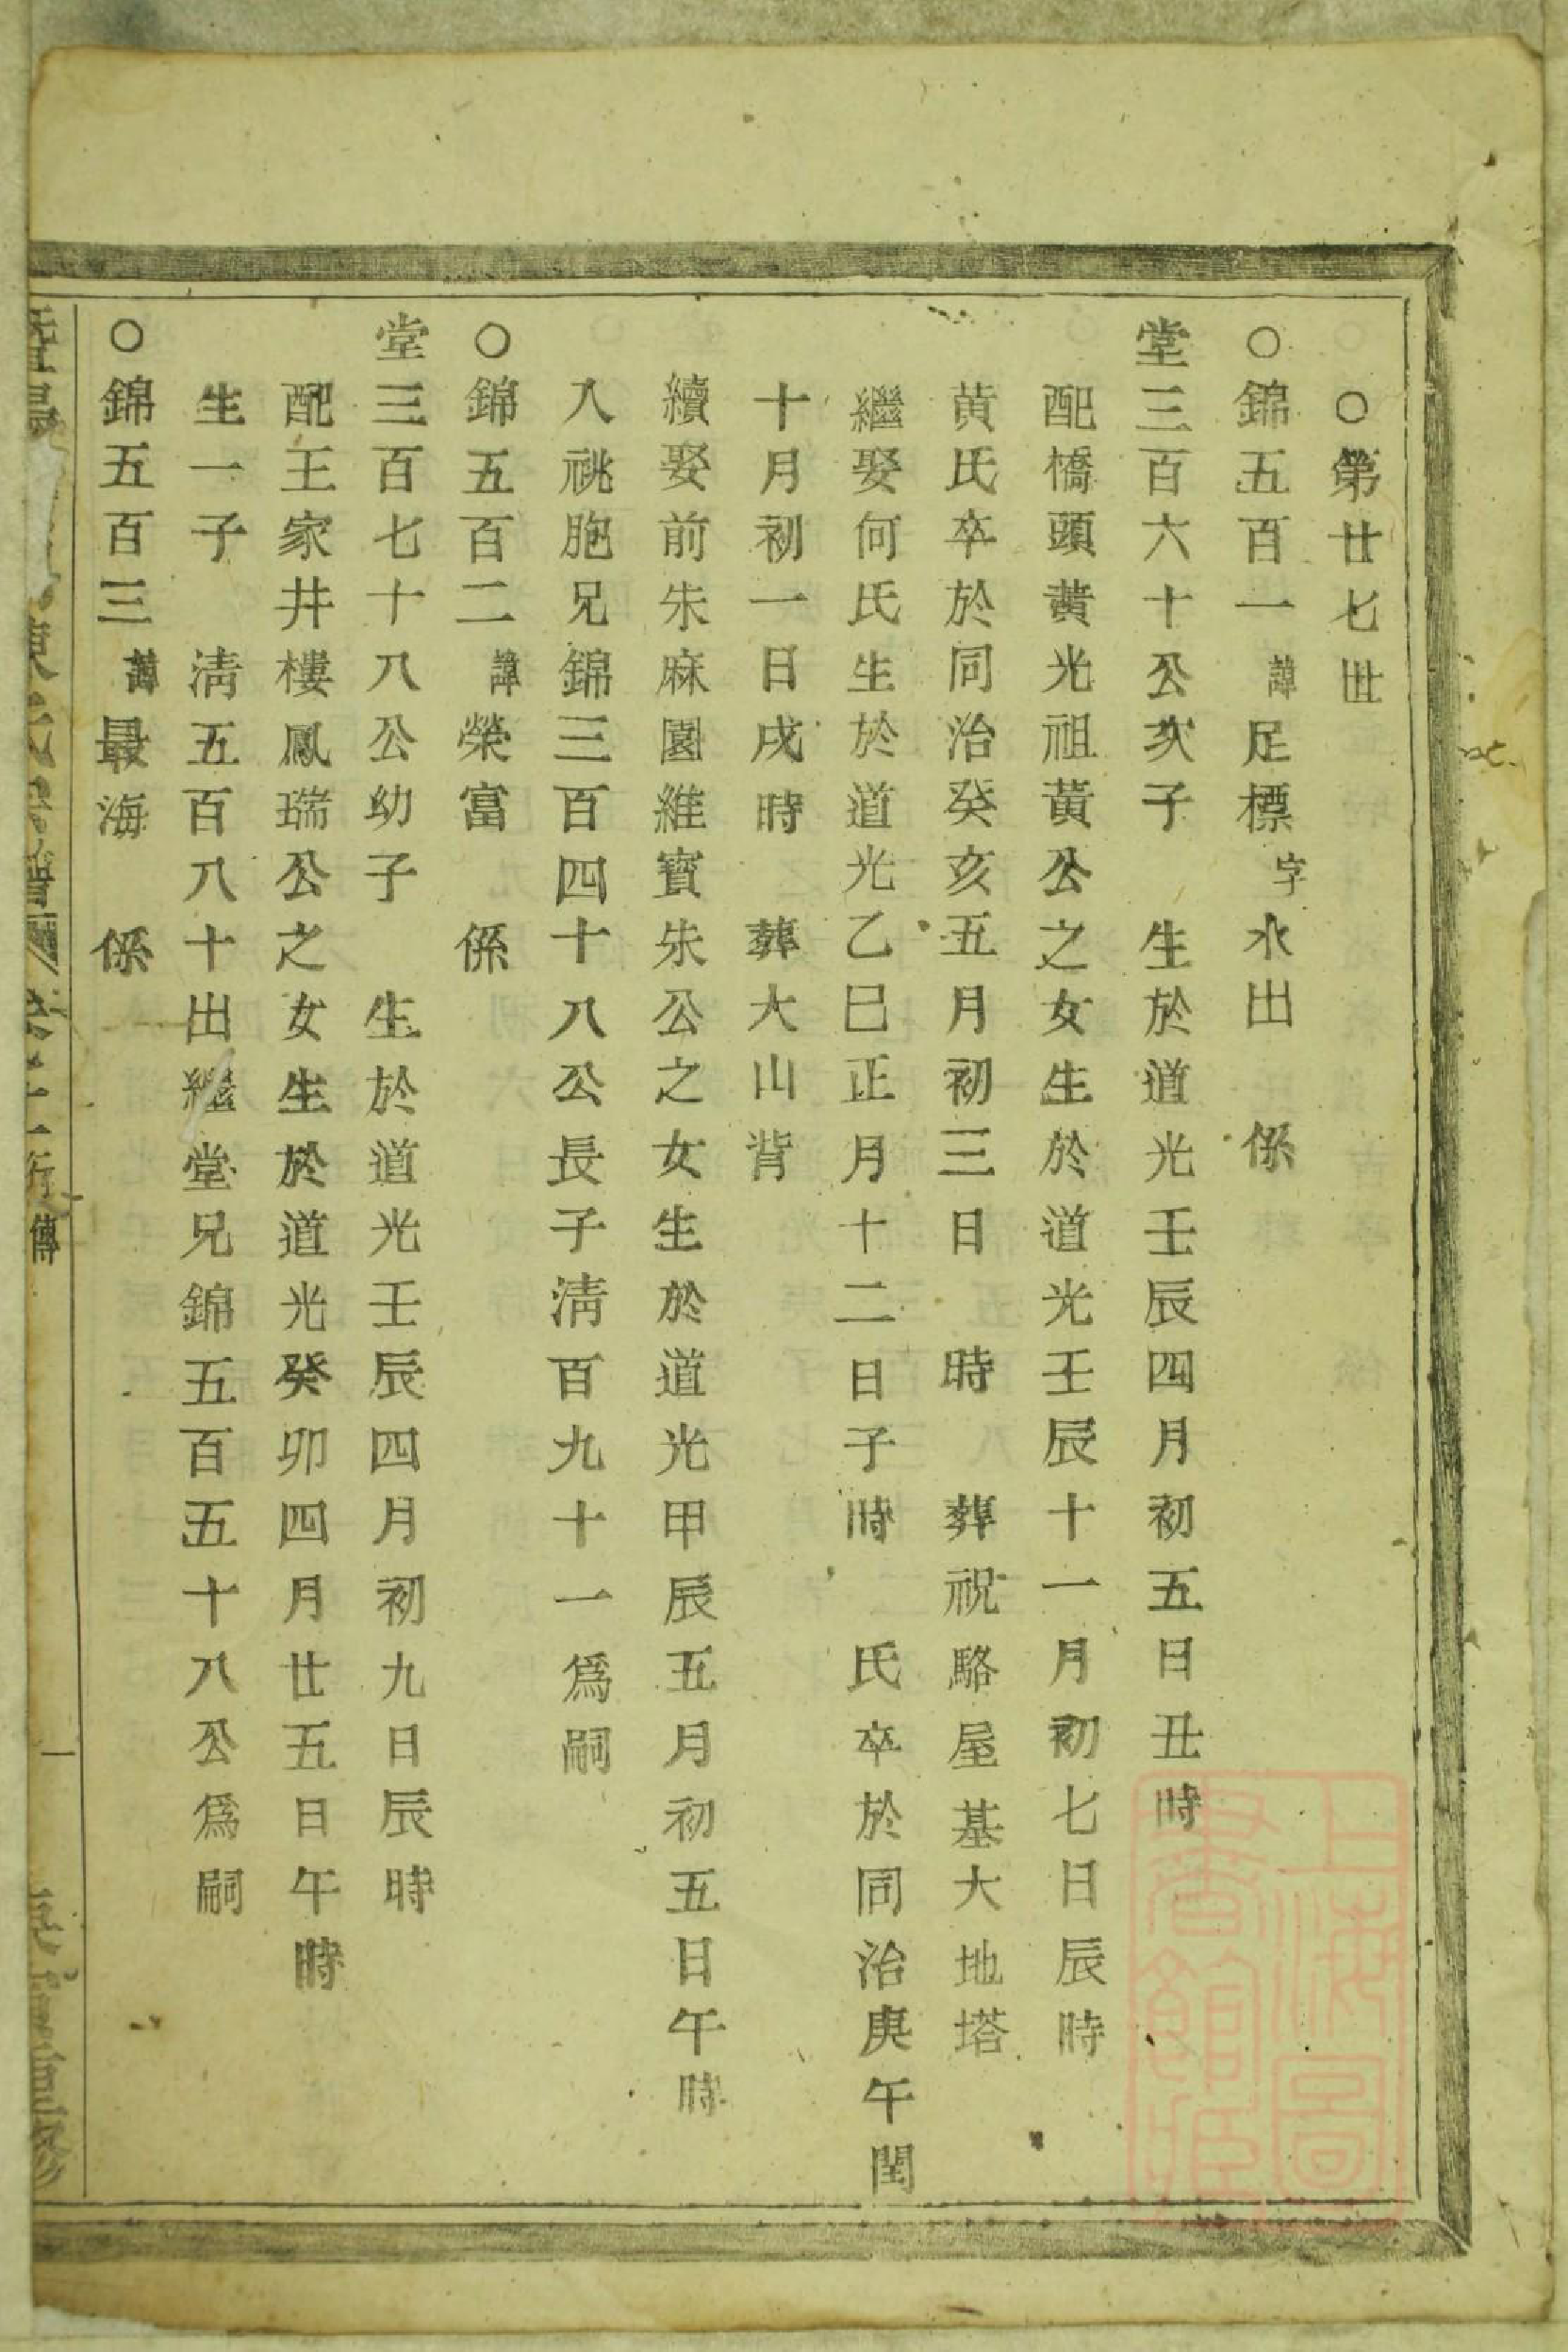 ○第廿七世
○錦五百一諱足標字水出 係
堂三百六十公次子 生於道光壬辰四月初五日丑時
配橋頭黃光祖黃公之女生於道光壬辰十一月初七日辰時
黃氏卒於同治癸亥五月初三日 時 葬祝駱屋基大地塔
繼娶何氏生於道光乙巳正月十二日子時 氏卒於同治庚午閏
十月初一日戌時 葬大山背
續娶前朱麻園維寶朱公之女生於道光甲辰五月初五日午時
入祧胞兄錦三百四十八公長子淸百九十一爲嗣
○錦五百二諱榮富 係
堂三百七十八公幼子 生於道光壬辰四月初九日辰時
配王家井樓鳳瑞公之女生於道光癸卯四月廿五日午時
生一子 淸五百八十出繼堂兄錦五百五十八公爲嗣
○錦五百三諱最海 係
傳
一
上海圖
書館